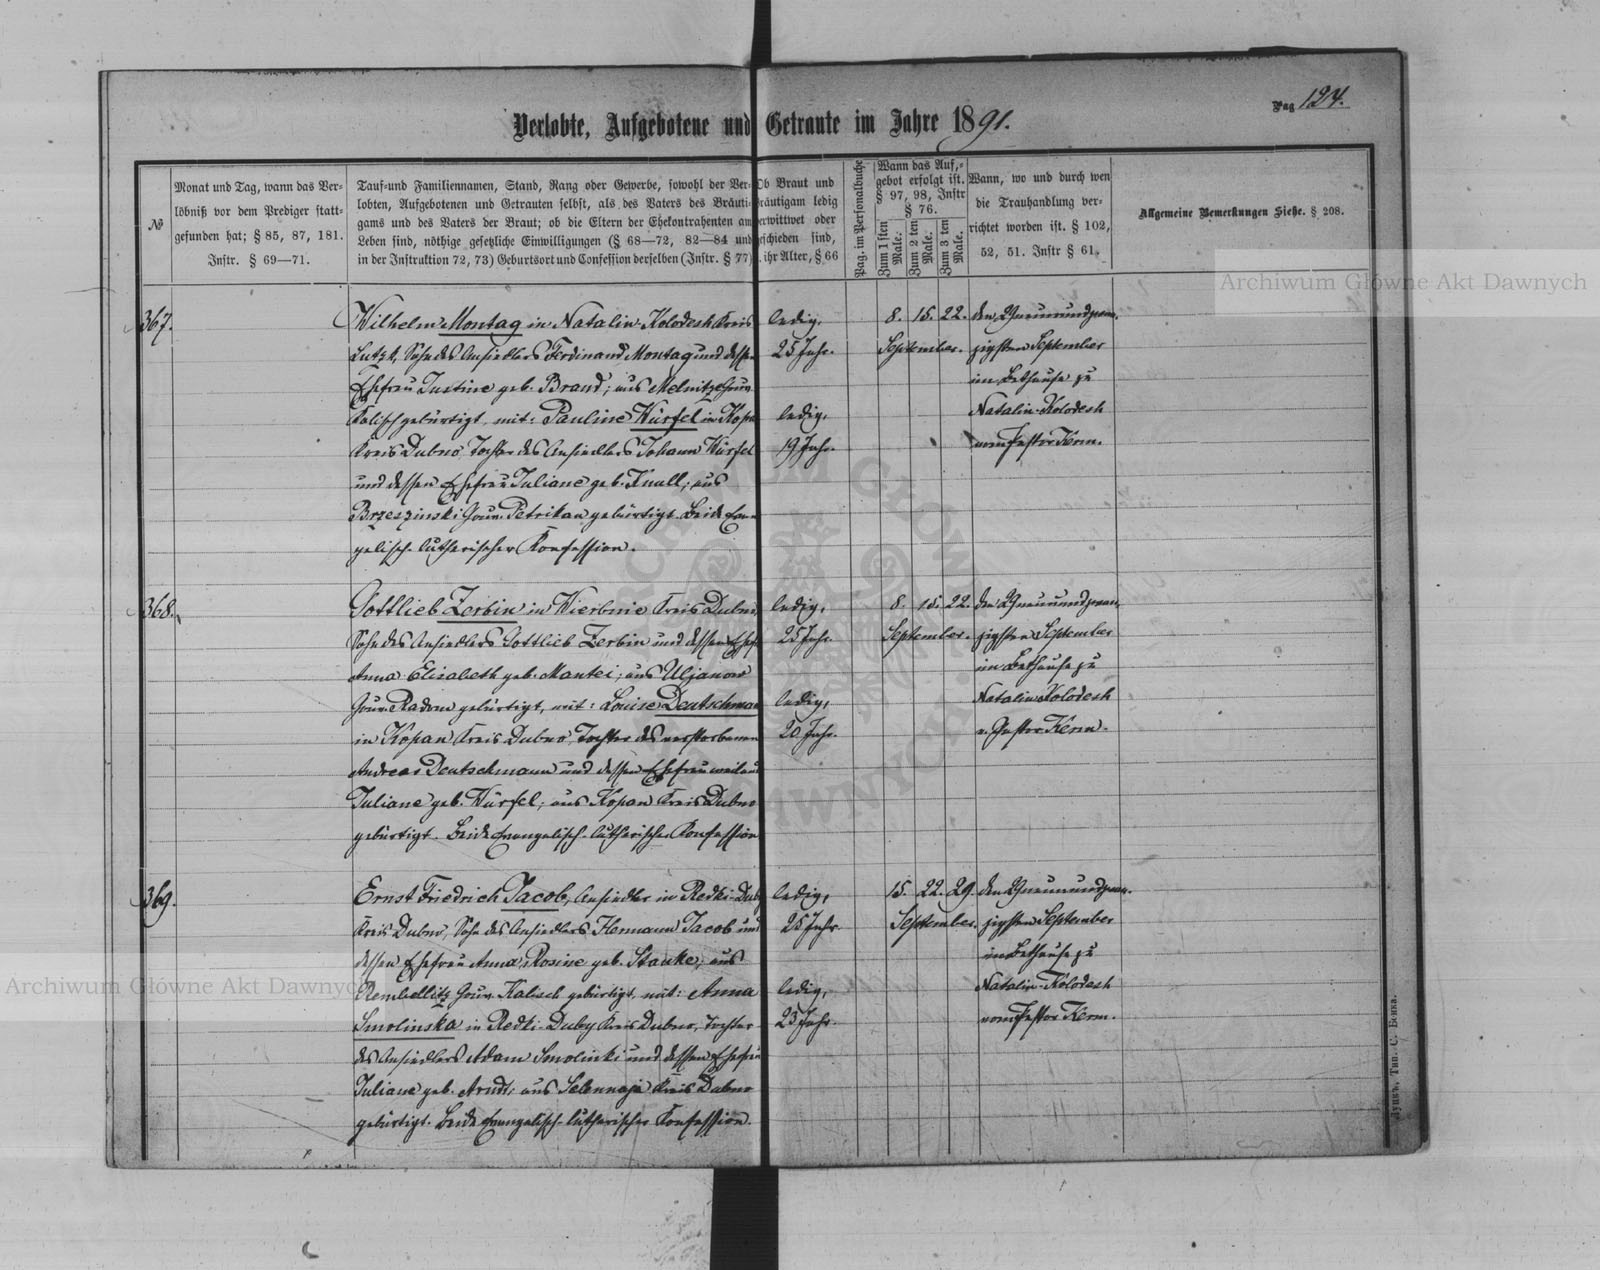 Pag 124.
Verlobte, Aufgebotene und Getraute im Jahre 1891.
№
Monat und Tag, wann das Ver=
löbniß vor dem Prediger statt=
gefunden hat; § 85, 87, 181.
Instr. § 69—71.
Tauf=und Familiennamen, Stand, Rang oder Gewerbe, sowohl der Ver=
lobten, Aufgebotenen und Getrauten selbst, als des Vaters des Bräuti=
gams und des Vaters der Braut; ob die Eltern der Ehekontrahenten am
Leben sind, nöthige gesetzliche Einwilligungen (§ 68—72, 82—84 und
in der Instruktion 72, 73) Geburtsort und Confession derselben (Instr. § 77)
Ob Braut und
Bräutigam ledig
verwittwet oder
geschieden sind,
ihr Alter, § 66
Pag. im Personalbuche
Wann das Auf=
gebot erfolgt ist.
§ 97, 98, Instr
§ 76.
Zum 1 sten Male.
Zum 2 ten Male.
Zum 3 ten Male.
Wann, wo und durch wen
die Trauhandlung ver=
richtet worden ist. § 102,
52, 51. Instr § 61.
Allgemeine Bemerkungen Siehe. § 208.
367.
Wilhelm Montag in Natalin-Kolodesh Kreis
Lutzk, Sohn des Ansiedlers Ferdinand Montag und dessen
Ehefrau Justine geb. Brand; aus Melnitze Gouv.
Kalisch gebürtigt, mit: Pauline Würfel in Kopan
Kreis Dubno, Tochter des Ansiedlers Johann Würfel
und dessen Ehefrau Juliane geb. Knull; aus
Brzeszinski Gouv. Petrikau gebürtigt. Beide Evan
gelisch-lutherischer Konfession.
ledig,
25 Jahr.
ledig,
19 Jahr.
8. 15. 22.
September.
den 29 neunundzwan
zigsten September
im Bethause zu
Natalin-Kolodesh
vom Pastor Kerm.
368.
Gottlieb Zerbin in Wierbnie Kreis Dubno,
Sohn des Ansiedlers Gottlieb Zerbin und dessen Ehefr
Anna Elisabeth geb. Mantei; aus Uljanow
Gouv. Radom gebürtigt, mit: Louise Deutschman
in Kopan Kreis Dubno, Tochter des verstorbenen
Andreas Deutschmann und dessen Ehefrau weiland
Juliane geb. Würfel; aus Kopan Kreis Dubno
gebürtigt. Beide Evangelisch-lutherischer Konfession
ledig,
25 Jahr.
ledig,
20 Jahr.
8. 15. 22.
September.
den 29 neunundzwan
zigsten September
im Bethause zu
Natalin-Kolodesh
v. Pastor Kerm.
369.
Ernst Friedrich Jacob, Ansiedler in Redki-Duby
Kreis Dubno, Sohn des Ansiedlers Hermann Jacob und
dessen Ehefrau Anna Rosine geb. Stanke; aus
Rembellitz Gouv. Kalisch gebürtigt, mit: Anna
Smolinska in Redki-Duby Kreis Dubno, Tochter
des Ansiedlers Adam Smolinski und dessen Ehefrau
Juliane geb. Arndt; aus Selennaja Kreis Dubno
gebürtigt. Beide Evangelisch-lutherischer Konfession.
ledig,
25 Jahr.
ledig,
23 Jahr.
15. 22. 29.
September.
den 29 neunundzwan
zigsten September
im Bethause zu
Natalin-Kolodesh
vom Pastor Kerm.
Archiwum Główne Akt Dawnych
Archiwum Główne Akt Dawnych